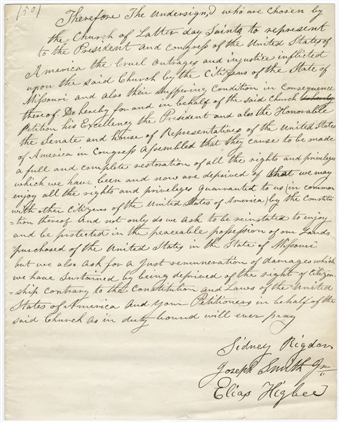 (50)
Therefore The Undersign,d who are chosen by
the Church of Latter day Saints to represent
to the President and congress of the United States of
America the Cruel outrages and injustice inflicted
upon the said Church by the Citizens of the State of
Missouri and also their suffering Condition in Consequence
thereof Do hereby for and in behalf of the said Church
Petition his Excellency the President and also the Honorable
the Senate and house of Representatives of the United States
of America in Congress assembled that they cause to be made
a full and complete restoration of all the rights and privileges
which we have been and now are deprived of that we may
enjoy all the rights and priveleges Guarantied to us (in common
with other Citizens of the United States of America) by the Constitu
tion thereof And not only do we ask to be reinstated to enjoy
and be protected in the peaceable possession of our Lands
purchased of the United States, in the State of Missouri
but we also ask for a Just remuneration of damages which
we have sustained by being deprived of the right of Citizen
-ship contrary to the Constitution and Laws of the United
States of America And your Petitioners in behalf of the
said Church as in duty bound will ever pray
Sidney Rigdon
Joseph Smith Jr
Elias Higbee